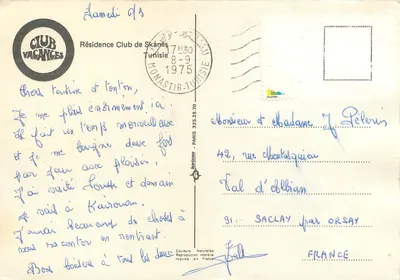 Samedi 6/9
CLUB
VACANCES
Résidence Club de Skanès
Tunisie
17H30
8-9
1975
MONASTIR-TUNISIE
Chers tantine et tonton,
Je me plais énormément ici
Il fait un temps merveilleux
et je me baigne deux fois
par jour avec plaisir.
J'ai visité Sousse et demain
Je vais à Kairouan.
J'aurai beaucoup de choses à
vous raconter en rentrant.
Bons baisers à tous les deux
PARIS 325.35.70
Couleurs Naturelles
Reproduction interdite
Monsieur et Madame J. Pélerin
42, rue Montesquieu
Val d'Albian
91. SACLAY par ORSAY
FRANCE